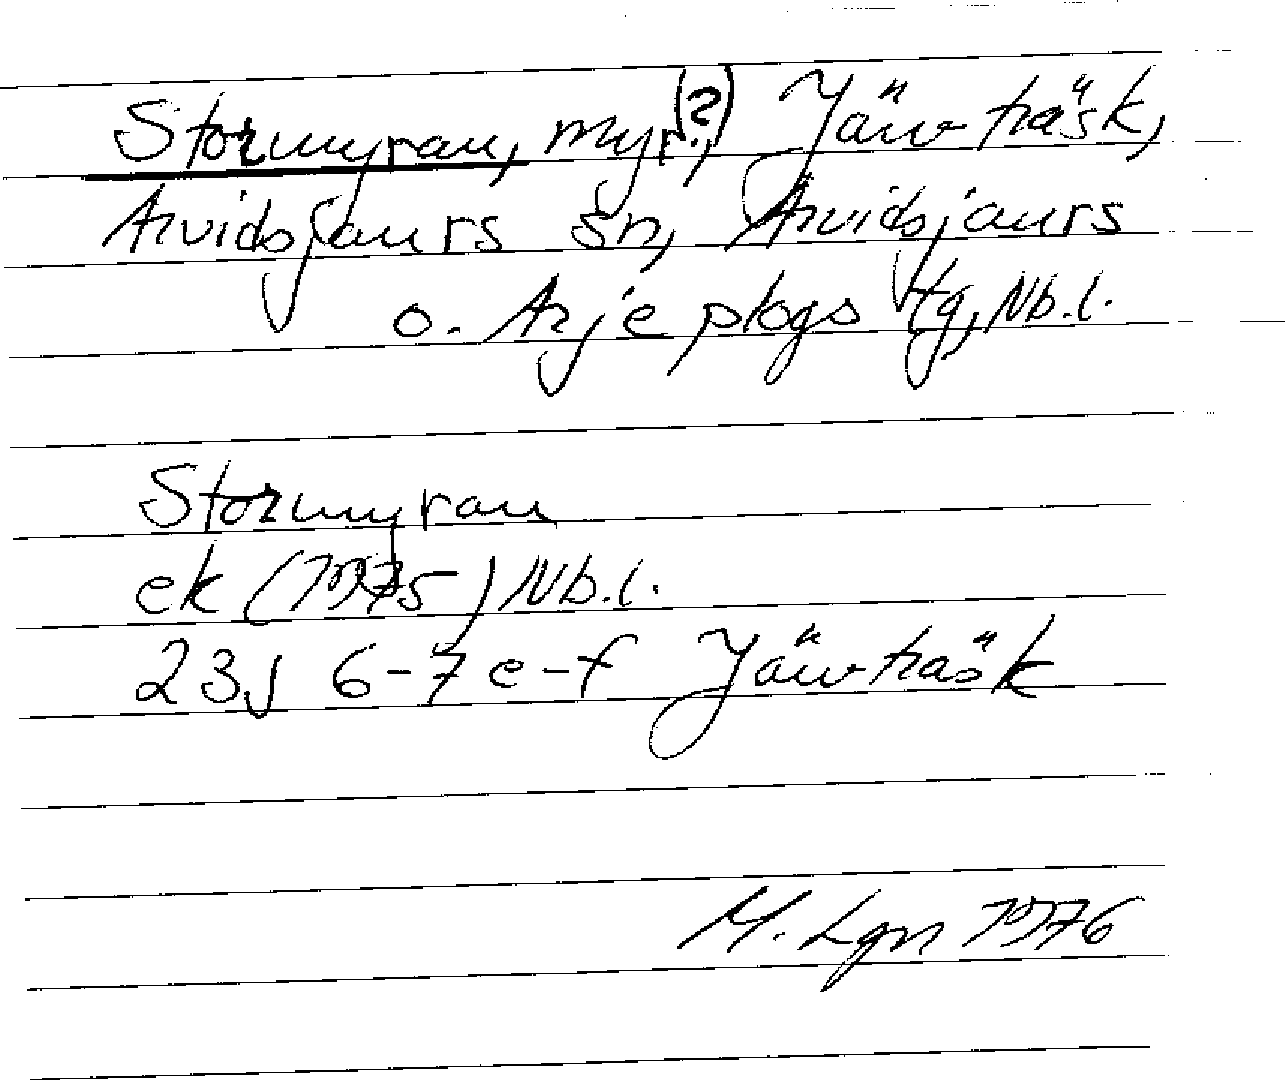 Stormyran, myr(?), Järvträsk,
Arvidsjaurs sn, Arvidsjaurs
o. Arjeplogs tg, Nb.l.
Stormyran
ek (1975) Nb.l.
23J 6-7 e-f Järvträsk
M. Lgn 1976